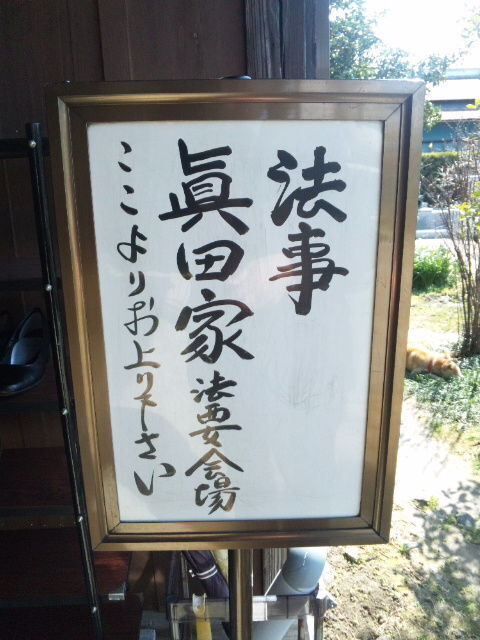 法事
眞田家法要会場
ここよりお上り下さい